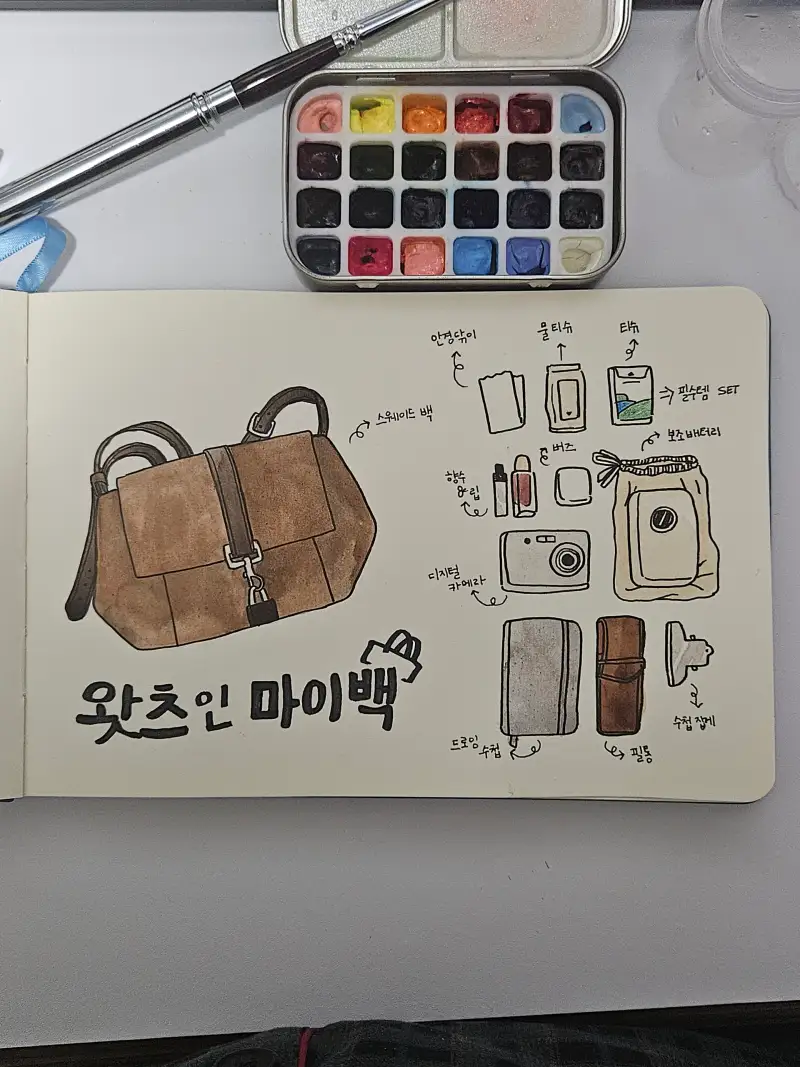 스웨이드 백
왓츠인 마이백
안경닦이
물티슈
티슈
필수템 SET
버즈
보조배터리
향수
&립
디지털
카메라
드로잉
수첩
필통
수첩 집게